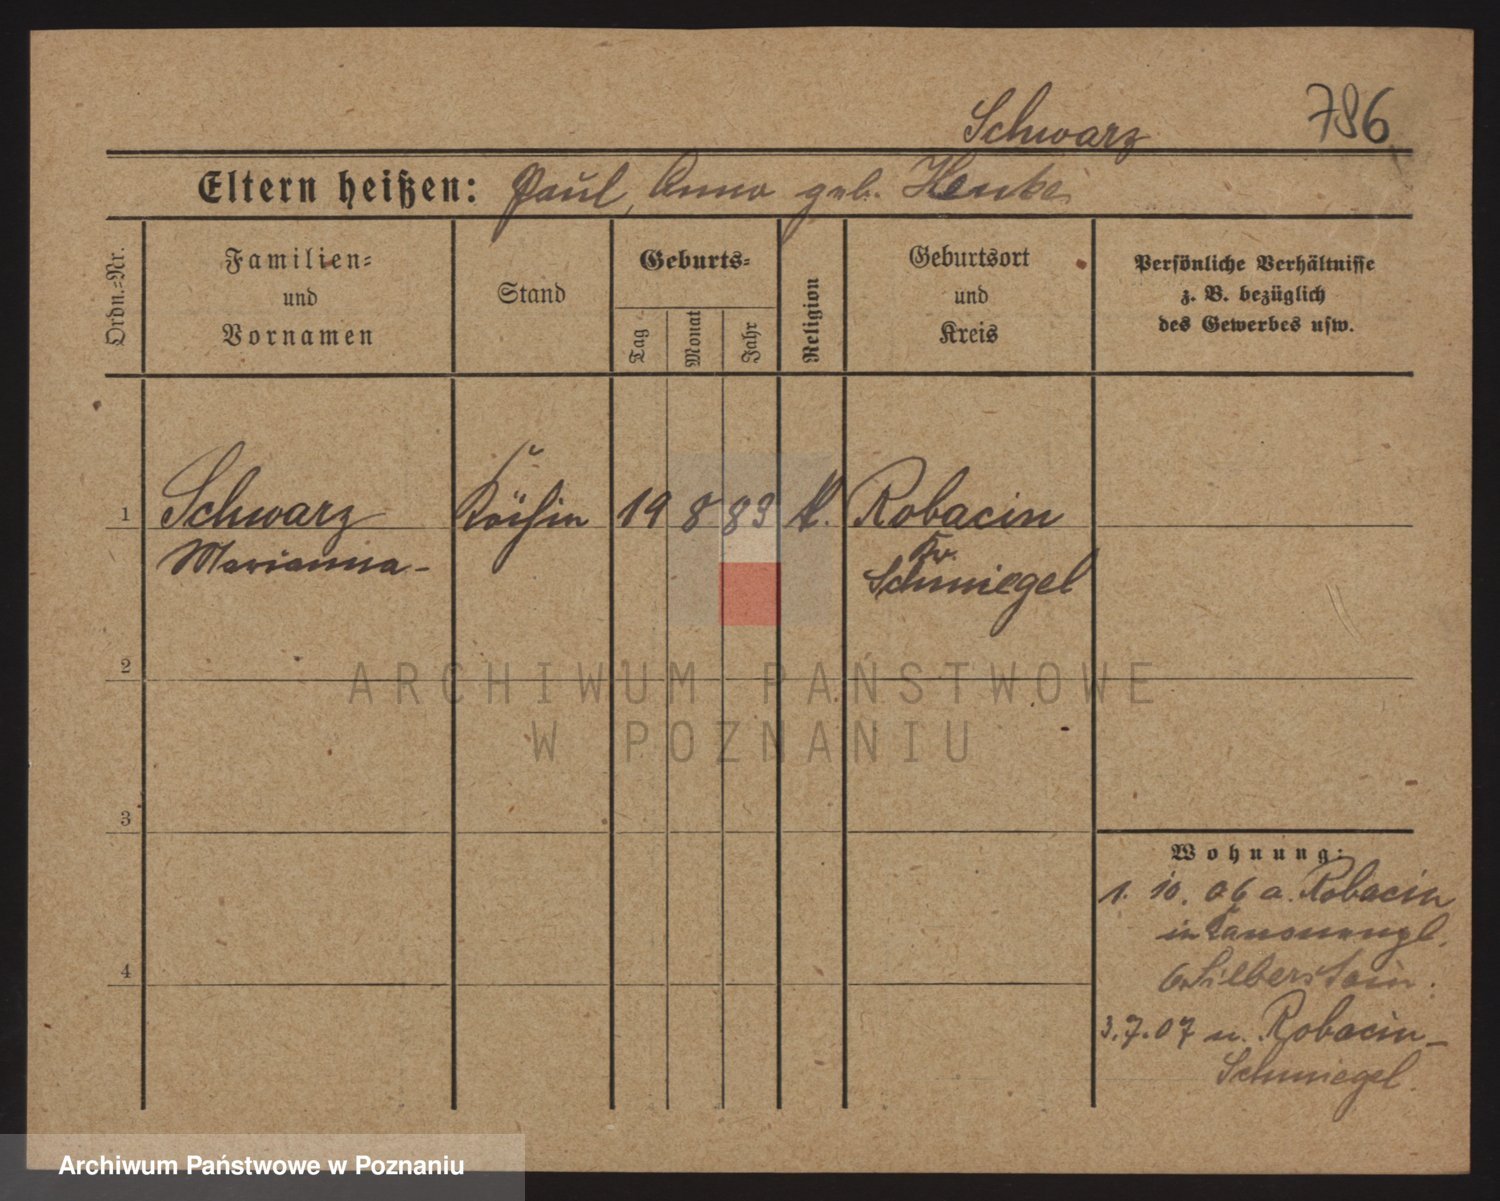 Schwarz
786
Eltern heißen: Paul, Anna geb. Henke
Ordn.-Nr.
Familien-
und
Vornamen
Stand
Geburts-
Tag
Monat
Jahr
Religion
Geburtsort
und
Kreis
Persönliche Verhältnisse
z. B. bezüglich
des Gewerbes usw.
1
Schwarz
Marianna
Köchin
19 8 83
k.
Robacin
Kr.
Schmiegel
2
3
4
ARCHIWUM PAŃSTWOWE
W POZNANIU
Wohnung:
1. 10. 06 a. Robacin
in
b. Silberstein.
3.7.07 n. Robacin-
Schmiegel.
Archiwum Państwowe w Poznaniu